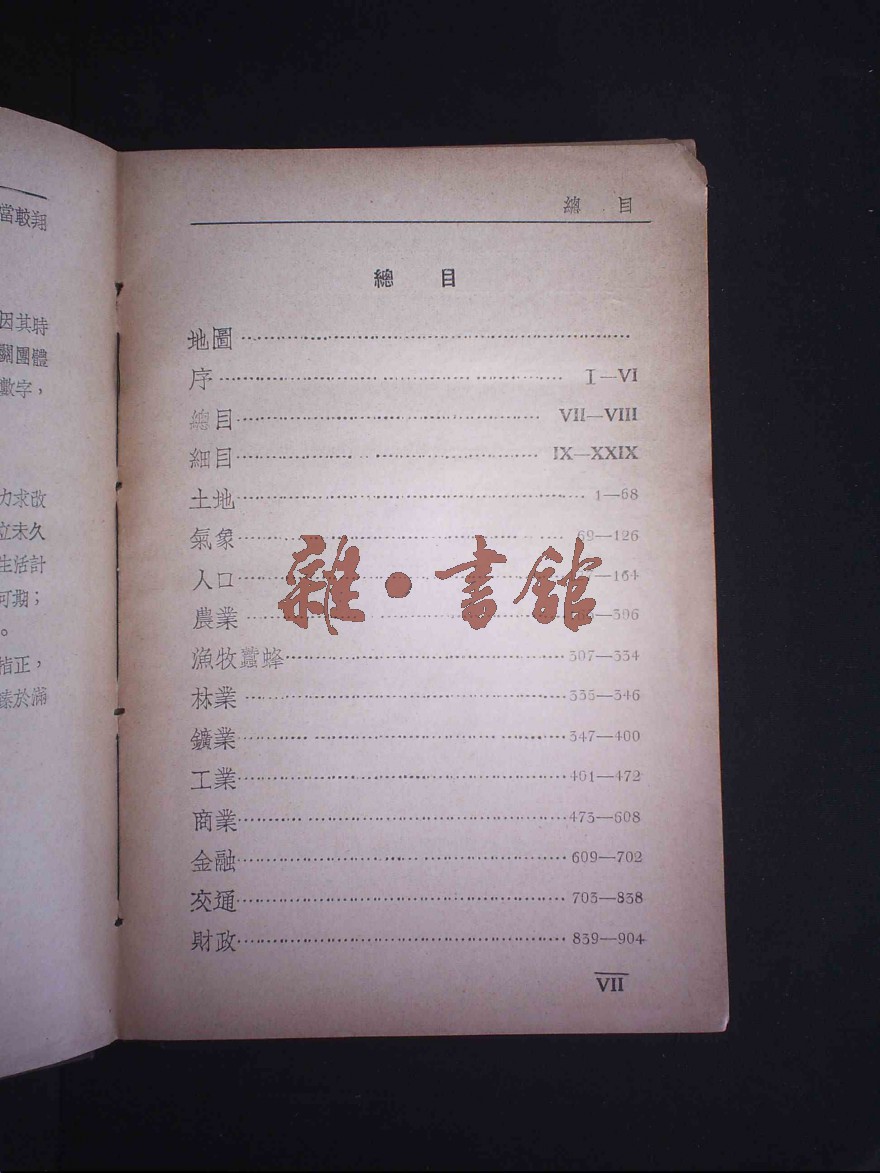 當較翔
因其時
關團體
數字，
力求改
立未久
生活計
可期；
。
指正，
臻於滿
總 目
總 目
地圖
序 I—VI
總目 VII—VIII
細目 IX—XXIX
土地 1—68
氣象 69—126
人口 —164
農業 —306
漁牧蠶蜂 307—334
林業 335—346
鑛業 347—400
工業 401—472
商業 473—608
金融 609—702
交通 703—838
財政 839—904
VII
雜·書館